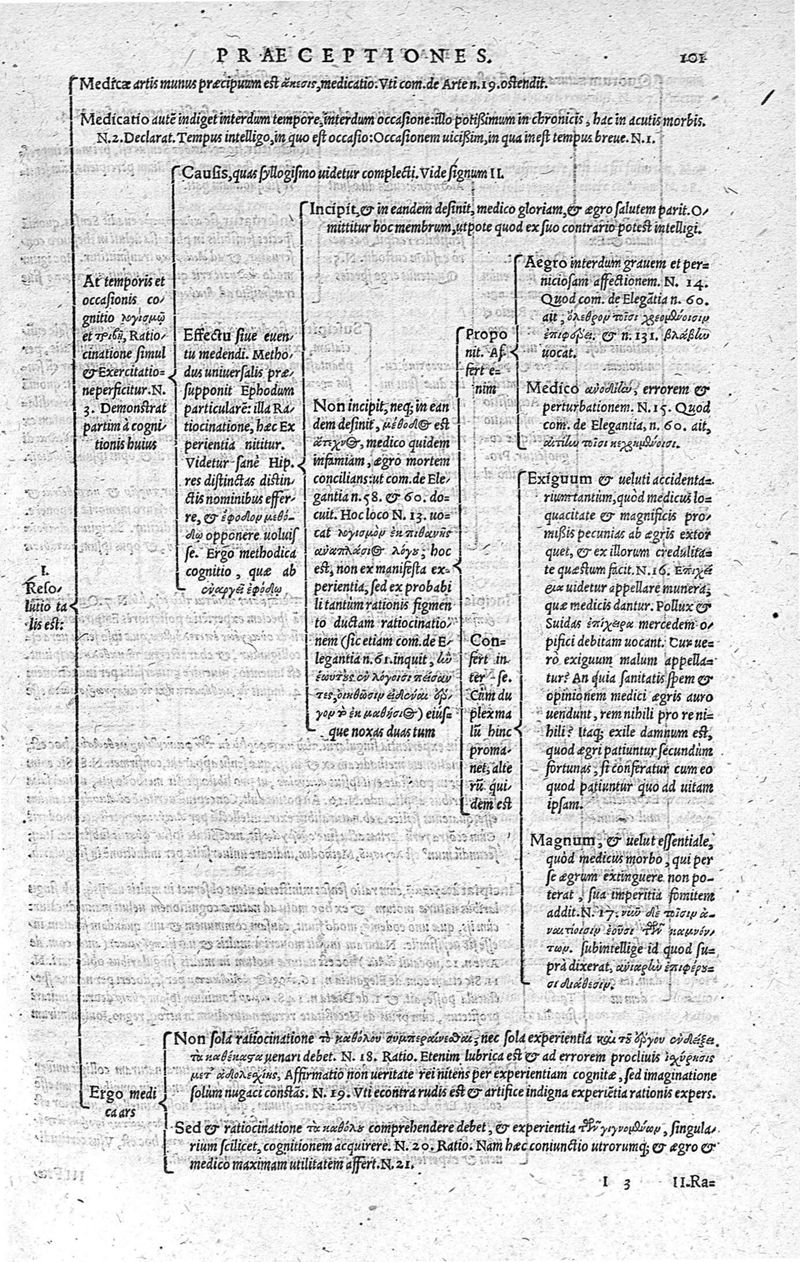 PRÆCEPTIONES. 101
Medicæ artis munus præcipuum est ἄκεσις, medicatio. Vti com. de Arte n. 19. ostendit.
Medicatio autē indiget interdum tempore, interdum occasione: illo potißimum in chronicis, hac in acutis morbis.
N. 2. Declarat. Tempus intelligo, in quo est occasio: Occasionem uicißim, in qua inest tempus breue. N. 1.
At temporis et
occasionis co-
gnitio λογισμῷ
et τριβῇ, Ratio-
cinatione simul
& Exercitatio-
ne perficitur. N.
3. Demonstrat
partim à cogni
tionis huius
Causis, quas syllogismo uidetur complecti. Vide signum II.
Effectu siue euen-
tu medendi. Metho-
dus uniuersalis præ-
supponit Ephodum
particularē: illa Ra-
tiocinatione, hæc Ex
perientia nititur.
Videtur sanè Hip.
res distinctas distin-
ctis nominibus effer-
re, & ἔφοδον μεθό-
δῳ opponere uoluis
se. Ergo methodica
cognitio, quæ ab
ἐναργεῖ ἐφόδῳ
Incipit, & in eandem desinit, medico gloriam, & ægro salutem parit. O-
mittitur hoc membrum, utpote quod ex suo contrario potest intelligi.
Non incipit, neq; in ean
dem desinit, μέθοδος est
ἄτεχνος, medico quidem
infamiam, ægro mortem
concilians: ut com. de Ele-
gantia n. 58. & 60. do-
cuit. Hoc loco N. 13. uo-
cat λογισμὸν ἐκ πιθανῆς
ἀναπλάσιος λόγου; hoc
est, non ex manifesta ex-
perientia, sed ex probabi
li tantùm rationis figmen
to ductam ratiocinatio-
nem (sic etiam com. de E-
legantia n. 61. inquit,
ἑωυτοὺς ἐν λόγοισι πείσαν
τες,
) eiús-
que noxas duas tum
Propo
nit. Af
fert e-
nim
Aegro interdum grauem et per=
niciosam affectionem. N. 14.
Quod com. de Elegātia n. 60.
ait, ὄλεθρον τοῖσι χρεομένοισιν
ἐπιφέρει. & n. 131. βλάβην
uocat.
Medico errorem &
perturbationem. N. 15. Quod
com. de Elegantia, n. 60. ait,
τοῖσι κεχρημένοισι.
Con=
fert in
ter se.
Cùm du
plex ma
lū hinc
proma-
net, alte
rū qui-
dem est
Exiguum & ueluti accidenta-
rium tantùm, quòd medicus lo=
quacitate & magnificis pro-
mißis pecunias ab ægris extor
quet, & ex illorum credulita=
te quæstum facit. N. 16. Ἐπιχεί
ρια uidetur appellare munera,
quæ medicis dantur. Pollux &
Suidas ἐπίχειρα mercedem o-
pifici debitam uocant. Cur ue-
rò exiguum malum appella=
tur? An quia sanitatis spem &
opinionem medici ægris auro
uendunt, rem nihili pro re ni=
hili? Itaq; exile damnum est,
quòd ægri patiuntur secundùm
fortunas, si conferatur cum eo
quod patiuntur quo ad uitam
ipsam.
Magnum, & uelut essentiale,
quòd medicus morbo, qui per
se ægrum extinguere non po-
terat, sua imperitia fomitem
addit. N. 17. νῦν δὲ τοῖσιν ἀ-
ναιτίοισιν ἐοῦσι τῶν καμνόν-
των. subintellige id quod su=
prà dixerat, ἀνιαρὴν ἐπιφέρου-
σι διάθεσιν.
I.
Reso-
lutio ta
lis est:
Ergo medi
ca ars
Non sola ratiocinatione τὸ καθόλου συμπεραίνεσθαι, nec sola experientia καὶ τοῦ ἔργου
τὰ καθέκαστα uenari debet. N. 18. Ratio. Etenim lubrica est & ad errorem procliuis ἰσχύρησις
μετ' ἀδολεσχίης, Affirmatio non ueritate rei nitens per experientiam cognitæ, sed imaginatione
solùm nugaci constās. N. 19. Vti econtra rudis est & artifice indigna experiētia rationis expers.
Sed & ratiocinatione τὰ καθόλου comprehendere debet, & experientia τῶν γιγνομένων, singula-
rium scilicet, cognitionem acquirere. N. 20. Ratio. Nam hæc coniunctio utrorumq; & ægro &
medico maximam utilitatem affert. N. 21.
I 3 II. Ra=